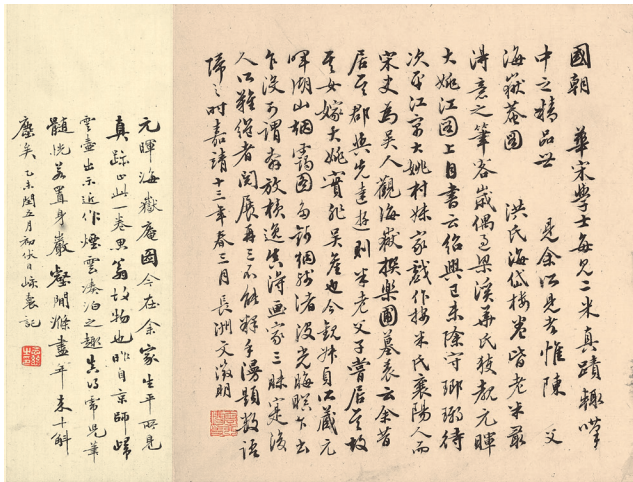 國朝　華宋學士每見二米真蹟輒嘆
中之精品世　見余所見者惟陳　父
海嶽菴圖　洪氏海岱樓卷皆老米最
得意之筆吝歲偶過梁溪華氏獲觀元暉
大姚江圖上自書云紹興己未除守瑯琊待
次平江寓大姚村妹家戲作按米氏襄陽人而
宋史為吳人觀海嶽撰樂圃墓表云余昔
居吳郡與先達遊則米老父子嘗居吳故
其女嫁大姚實非吳產也今觀姊貞所藏元
暉湖山烟靄圖向背相於渚汲光晦暝乍出
乍沒可謂奔放橫逸真得画家三昧定後
人所難繼者閱展再三不能釋手漫題數語
歸之時嘉靖十三年春三月長洲文徵明
元暉海嶽庵圖今在余家生平所見
真跡止此一卷思翁故物也昨自京師歸
雲壺出示近作煙雲湊泊之趣真得房山筆
髓恍若置身巖壑間滌盡年來十斛
塵矣乙未閏五月初伏日 記